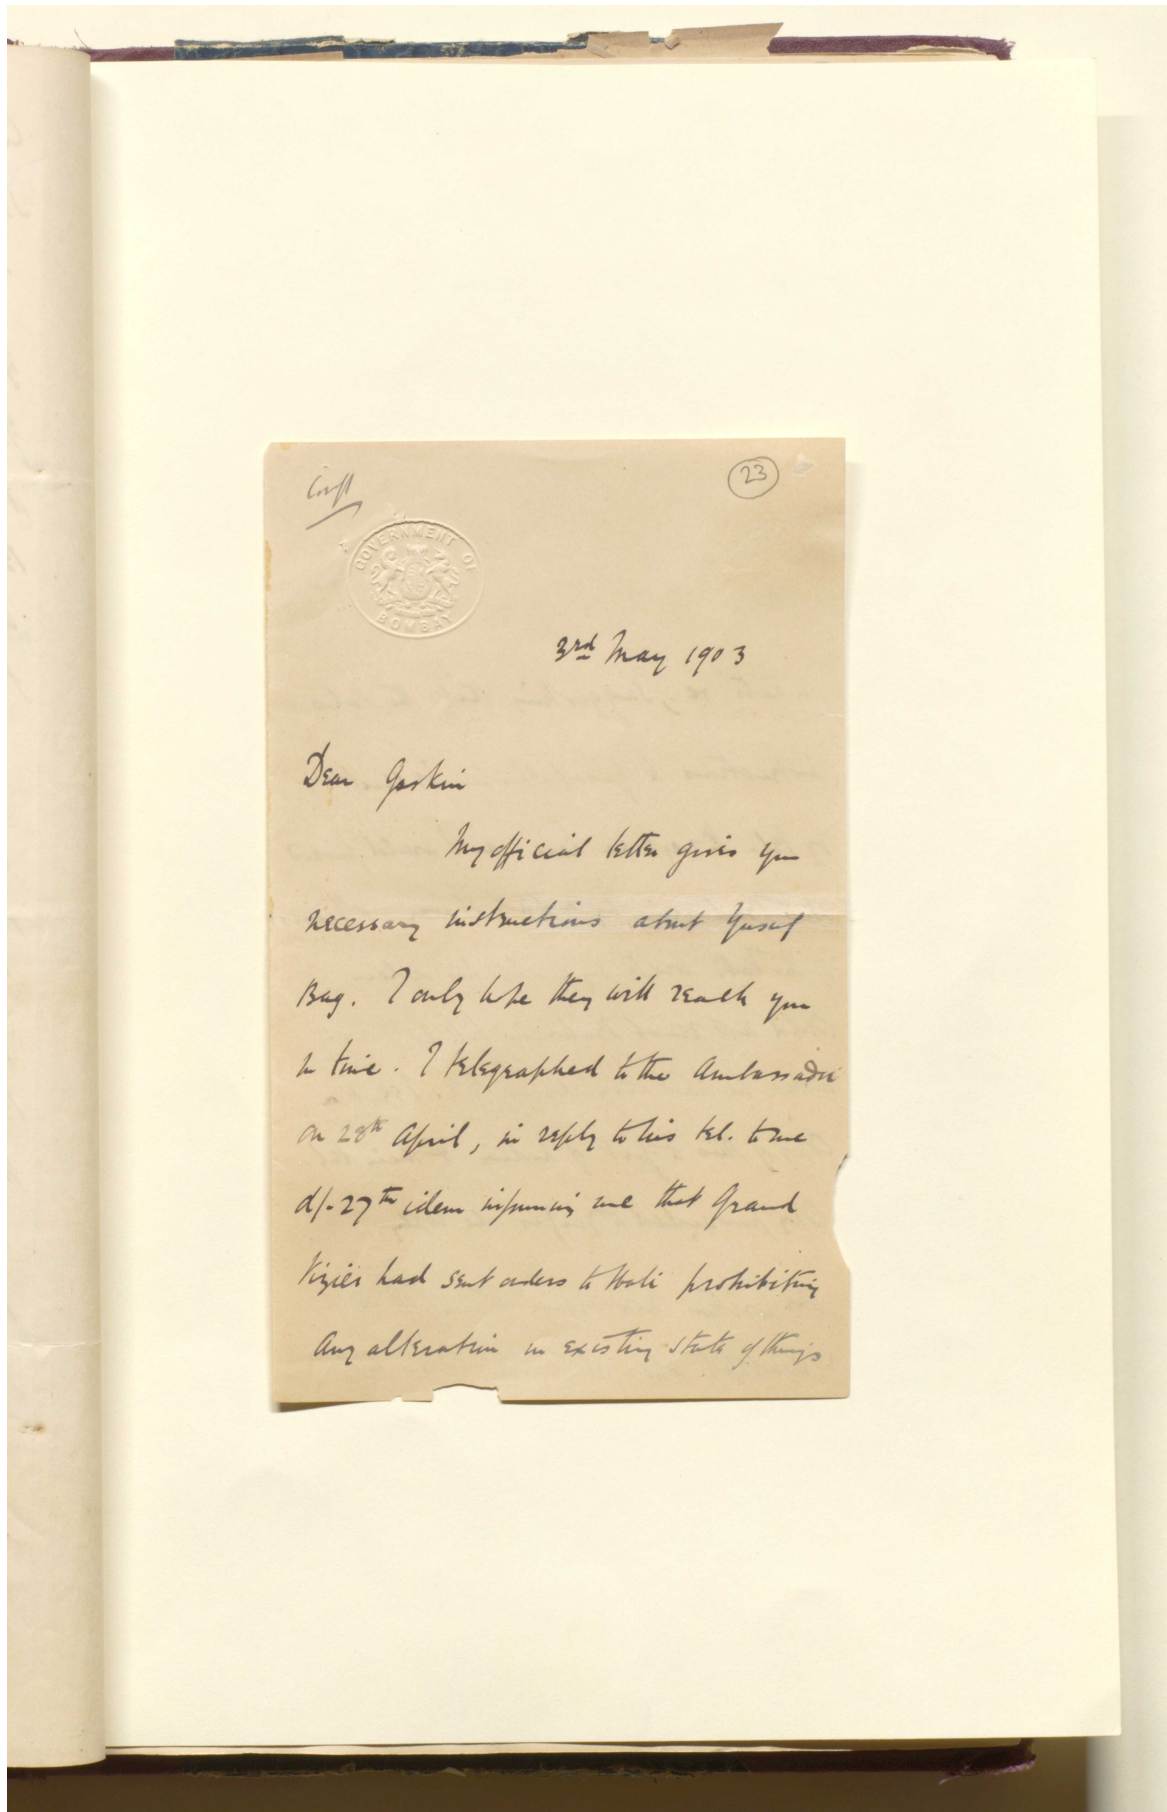 Conf
23
GOVERNMENT OF
BOMBAY
3rd May 1903
Dear Gaskin
My official letter gives you
necessary instructions about Yusuf
Bag. I only hope they will reach you
in time. I telegraphed to the Ambassador
on 28th April, in reply to his tel. to me
d/- 27th idem informing me that Grand
Vizier had sent orders to Wali prohibiting
any alteration in existing state of things